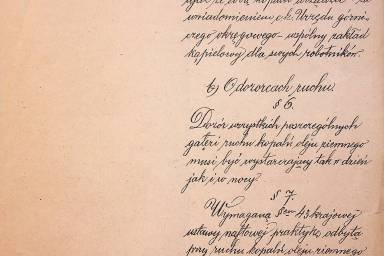 uwiadomieniem c.k. Urzędu górni-
czego okręgowego - wspólny zakład
kąpielowy dla swych robotników.
b) O dozorcach ruchu.
§ 6.
Dozór wszystkich poszczególnych
gałęzi ruchu kopalń oleju ziemnego
musi być wystarczający tak w dzień
jak i w nocy
§ 7.
Wymaganą §em 43 krajowej
ustawy naftowej praktykę odbytą
przy ruchu kopalń oleju ziemnego